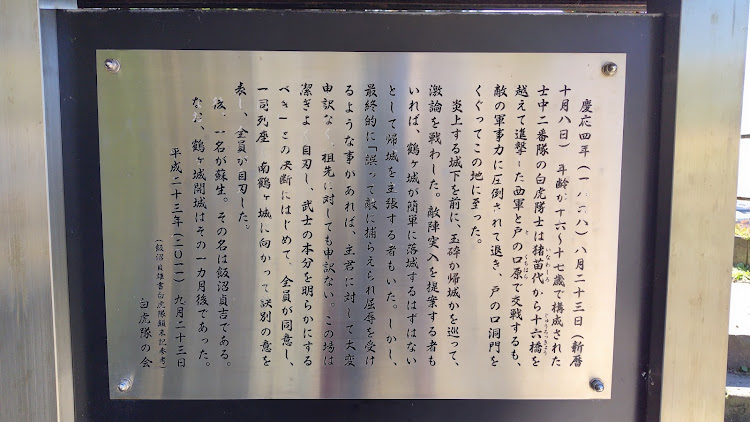 慶応四年(一八六八)八月二十三日(新暦
十月八日)年齢が十六〜十七歳で構成された
士中二番隊の白虎隊士は猪苗代から十六橋を
越えて進撃した西軍と戸の口原で交戦するも、
敵の軍事力に圧倒されて退き、戸の口洞門を
くぐってこの地に至った。
炎上する城下を前に、玉砕か帰城かを巡って、
激論を戦わした。敵陣突入を提案する者も
いれば、鶴ヶ城が簡単に落城するはずはない
として帰城を主張する者もいた。しかし、
最終的に「誤って敵に捕らえられ屈辱を受け
るような事があれば、主君に対して大変
申訳なく、祖先に対しても申訳ない。この場は
潔ぎよく自刃し、武士の本分を明らかにする
べき」との決断にはじめて、全員が同意し、
一同死座 南鶴ヶ城に向かって訣別の意を
表し、全員が自刃した。
後、一名が蘇生。その名は飯沼貞吉である。
なお、鶴ヶ城開城はその一カ月後であった。
平成二十三年(二〇一一)九月二十三日
(飯沼貞雄書白虎隊顛末記参考)
白虎隊の会